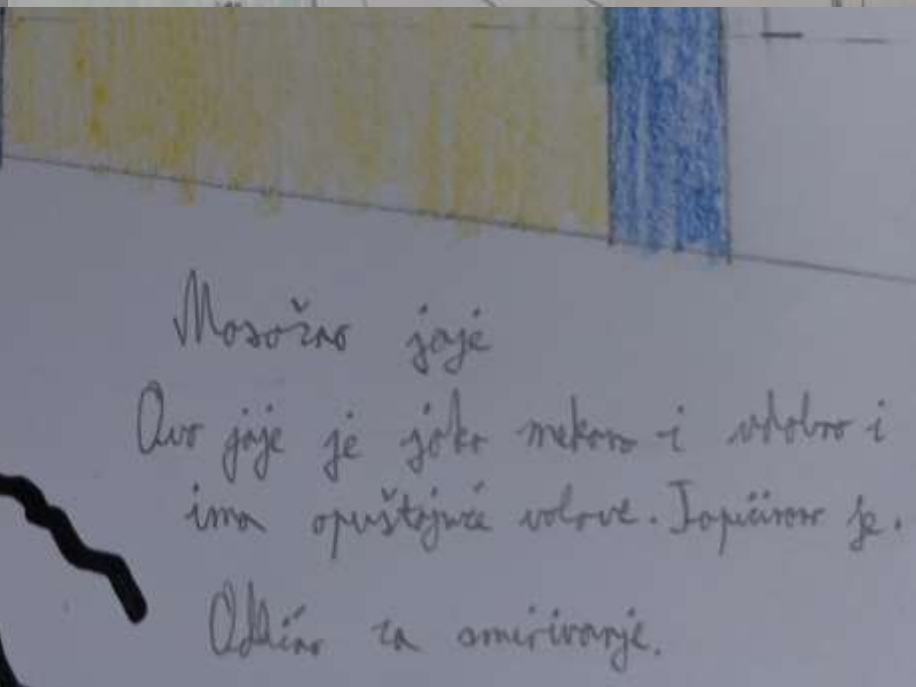 Masažno jaje
Ovo jaje je jako mekano i udobno i
ima opuštajuće valove. Tapicirano je.
Odlično za smirivanje.